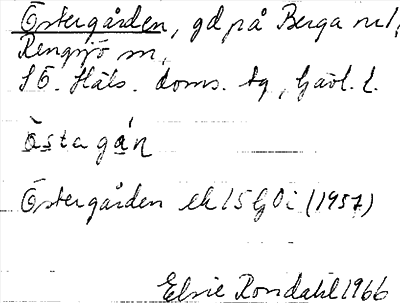 Östergården, gd på Berga nr 1,
Rengsjö sn,
SÖ. Häls. doms. tg, Gävl. l.
östa gán
Östergården ek 15 G 0 i (1957)
Elsie Rondahl 1966